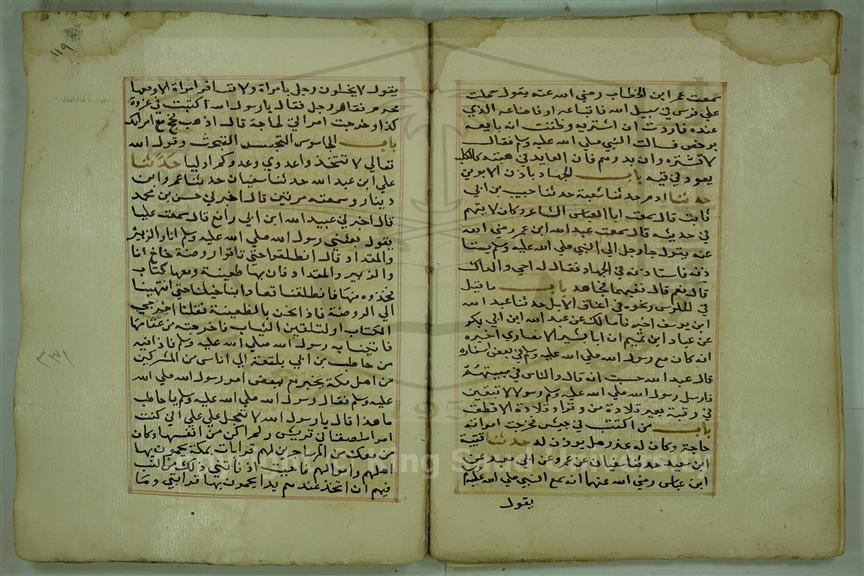 سمعت عمر ابن الخطاب رضي الله عنه يقول حملت
علي فرس في سبيل الله فابتاعه او فاضاعه الذي
عنده فاردت ان اشتريه وظننت انه بايعه
برخص فسالت النبي صلي الله عليه وسلم فقال
لا تشتره وان بدرهم فان العايد في هبته كالكلب
يعود في قيه باب الجهاد باذن الابوين
حدثنا ادم حدثنا شعبة حدثنا حبيب من ابي
ثابت قال سمعت ابا العباس الشاعر وكان لا يتهم
في حديثه قال سمعت عبد الله ابن عمر رضي الله
عنه يقول جا رجل الي النبي صلي الله عليه وسلم يستا
ذنه فاستاذنه في الجهاد فقال له احي والداك
قال نعم قال ففيهما فجاهد باب ما قيل
في الجلوس ونحوه في اعناق الابل حدثنا عبد الله
ابن يوسف اخبرنا مالك عن عبد الله ابن ابي بكر
عن عباد ابن تميم ان ابا بشير الانصاري اخبره
انه كان مع رسول الله صلي الله عليه وسلم في بعض اسفاره
قال عبد الله حسبت انه قال والناس في مبيتهم
فارسل رسول الله صلي الله عليه وسلم رسولا لا تبقين
في رقبة بعير قلادة من وتر او قلادة الا قطعت
باب من اكتتب في جيش فخرجت امراته
حاجة وكان له عذر هل يوذن له حدثنا قتيبة
ابن سعيد حدثنا سفيان عن عمرو عن ابي معبد عن
ابن عباس رضي الله عنهما انه سمع النبي صلي الله عليه وسلم
يقول
١١٩
يقول لا يخلون رجل بامراة ولا تسافر امراة الا ومعها
محرم فقام رجل فقال يا رسول الله اكتتبت في غزوة
كذا وخرجت امراتي لحاجة قال اذهب فحج مع امراتك
باب الجاسوس التجسس التبحث وقول الله
تعالي لا تتخذوا عدوي وعدوكم اوليا حدثنا
علي ابن عبد الله حدثنا سفيان حدثنا عمرو ابن
دينار وسمعته مرتين قال اخبرني حسن بن محمد
قال اخبرني عبيد الله ابن ابي رافع قال سمعت عليا
يقول بعثني رسول الله صلي الله عليه وسلم انا والزبير
والمقداد قال انطلقوا حتي تاتوا روضة خاخ انا
والزبير والمقداد فان بها ظعينة ومعها كتاب
فخذوه منها فانطلقنا تعادا بنا خيلنا حتي انتهينا
الي الروضة فاذا نحن بالظعينة فقلنا اخرجي
الكتاب او لتلقين الثياب فاخرجته من عقاصها
فاتينا به رسول الله صلي الله عليه وسلم فاذا فيه
من حاطب من ابي بلتعة الي اناس من المشركين
من اهل مكة يخبرهم ببعض امر رسول الله صلي الله
عليه وسلم فقال رسول الله صلي الله عليه وسلم يا حاطب
ما هذا قال يا رسول الله لا تعجل علي اني كنت
امرا ملصقا في قريش ولم اكن من انفسها وكان
من معك من المهاجرين لهم قرابات بمكة يحمون بها
اهلهم واموالهم فاحببت اذ فاتني ذلك من النسب
فيهم ان اتخذ عندهم يدا يحمون بها قرابتي وما